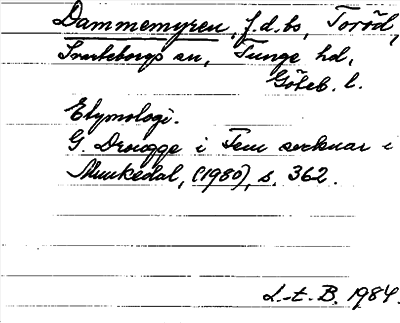 Dammemyren, f.d. bs, Toröd,
Svarteborgs sn, Tunge hd,
Göteb. l.
Etymologi.
G. Drougge i Fem socknar i
Munkedal, (1980), s. 362.
L-t. B. 1984.